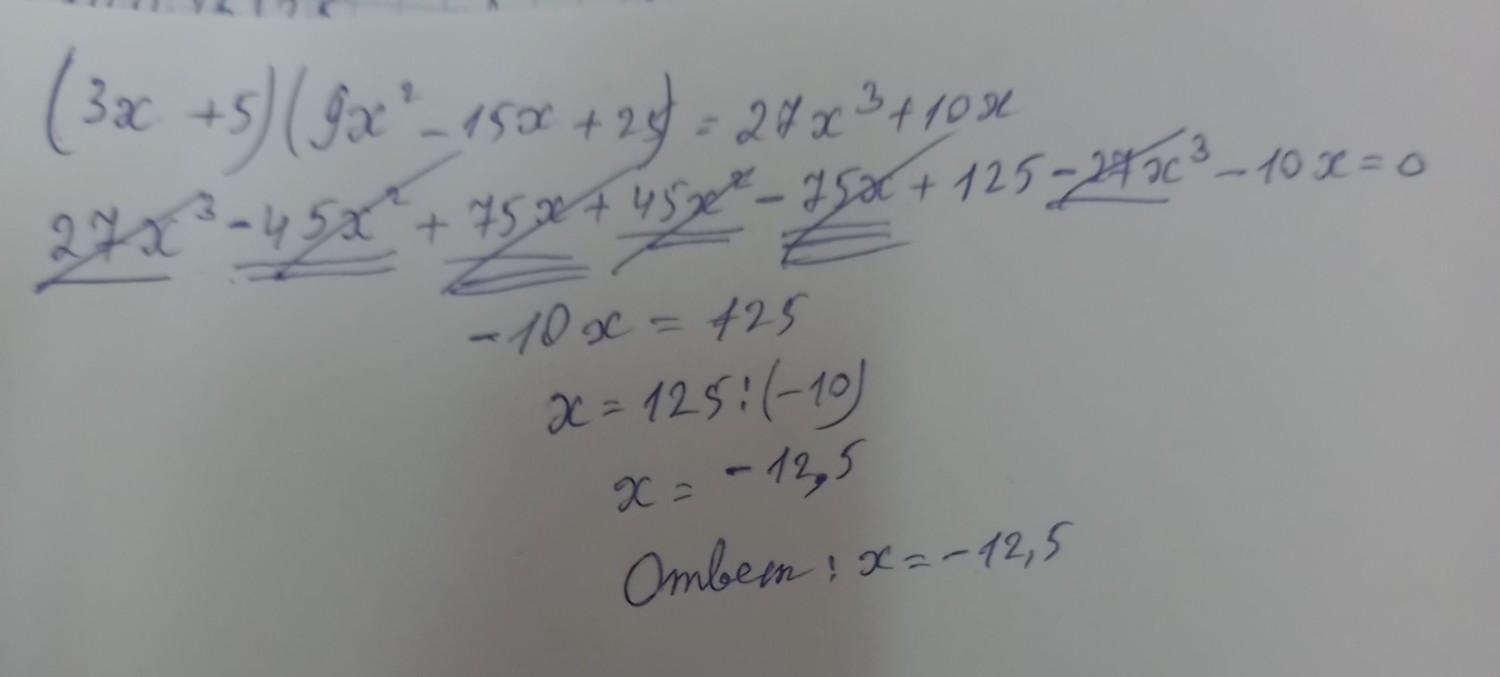 (3x + 5)(9x² - 15x + 25) = 27x³ + 10x
27x³ - 45x² + 75x + 45x² - 75x + 125 - 27x³ - 10x = 0
-10x = 125
x = 125 : (-10)
x = -12,5
Ответ: x = -12,5